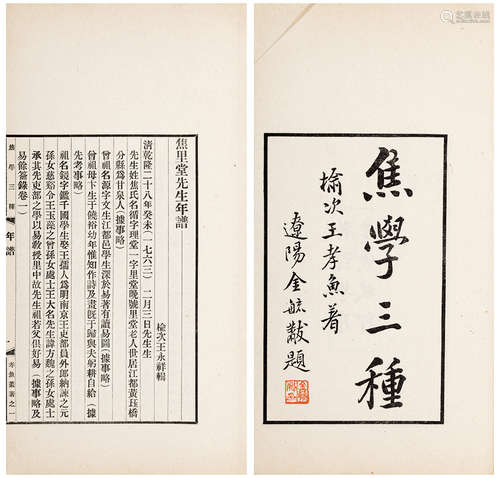 焦學三種
榆次王孝魚著
遼陽金毓黻題
焦里堂先生年譜
榆次王永祥輯
清乾隆二十八年癸未(一七六三) 二月三日先生生
先生姓焦氏名循字理堂一字里堂晚號里堂老人世居江都黃珏橋
分縣爲甘泉人(據事略)
曾祖名源字文生江都邑學生深於易著有讀易圖(據事略)
曾祖母卞生于饒裕幼年惟知作詩及畫既于歸與夫躬耕自給(據
先考事略)
祖名鏡字鑑千國學生娶王孺人爲明南京王吏部員外郎納諫之元
孫女慈谿令王玉藻之曾孫女處士王大名先生諱方魏之孫女處士
承其先吏部之學以易教授里中故先生祖若父俱好易(據事略及
易餘籥錄卷一)
焦學三種 年譜
孝魚叢著之一